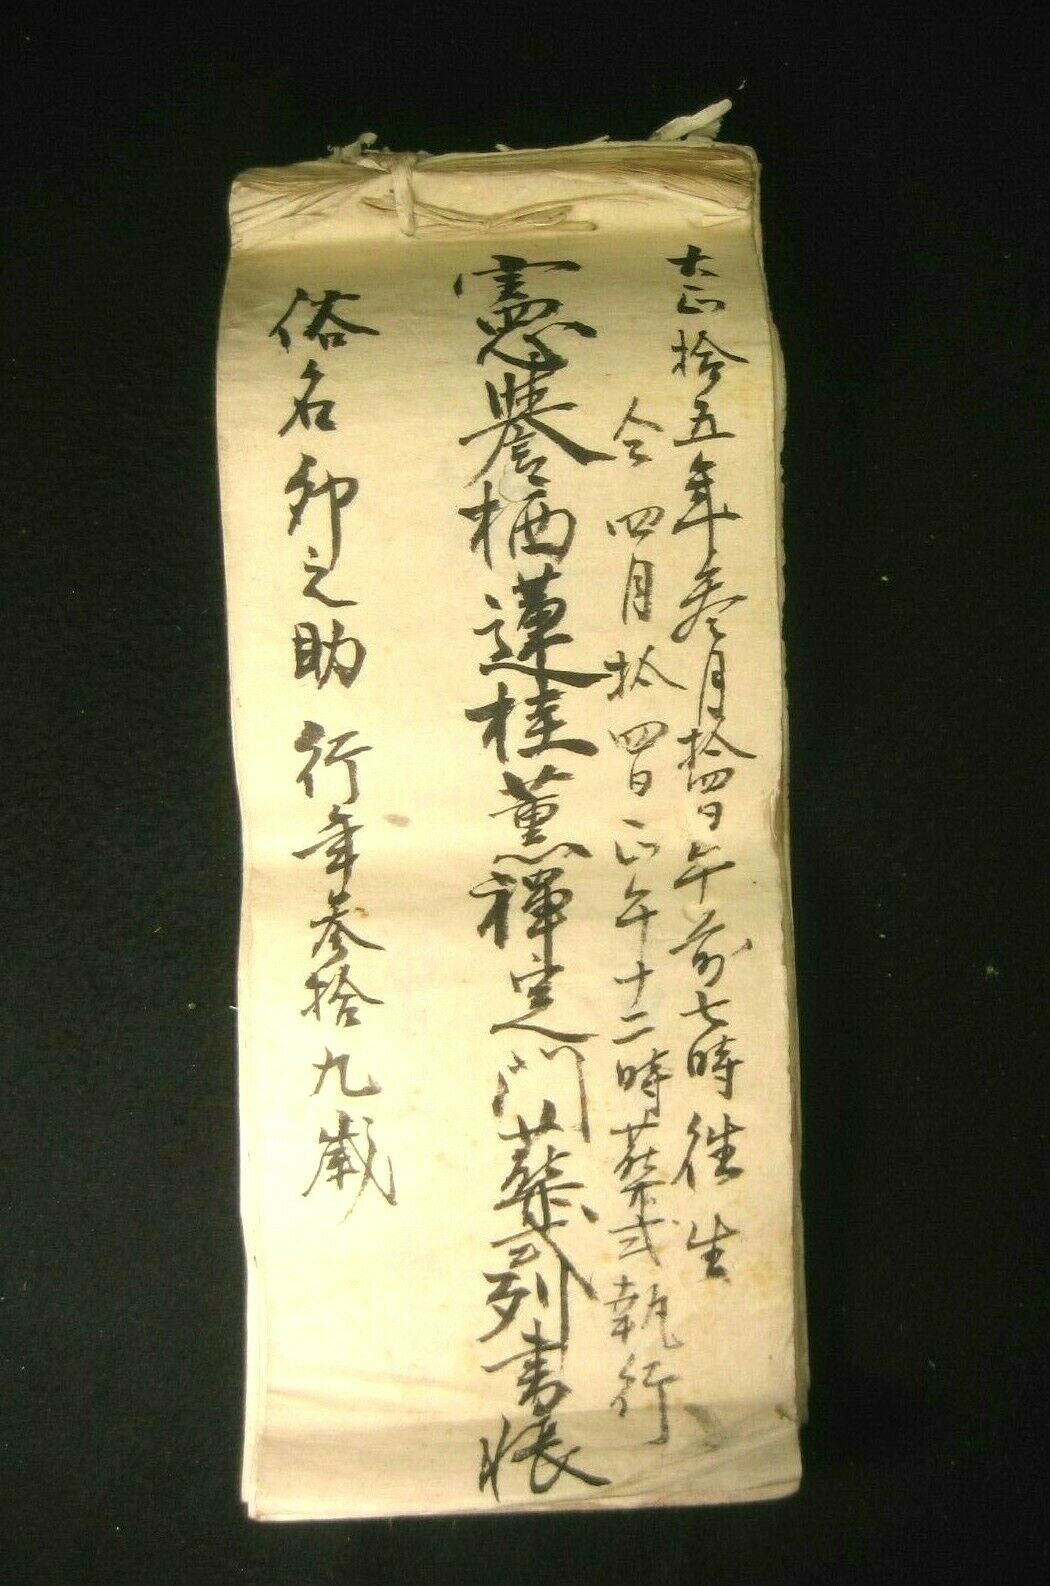 大正拾五年参月拾四日午前七時往生
仝四月拾四日正午十二時葬式執行
憲譽栖蓮桂薫禪定門葬式列書帳
俗名卯之助行年参拾九歳